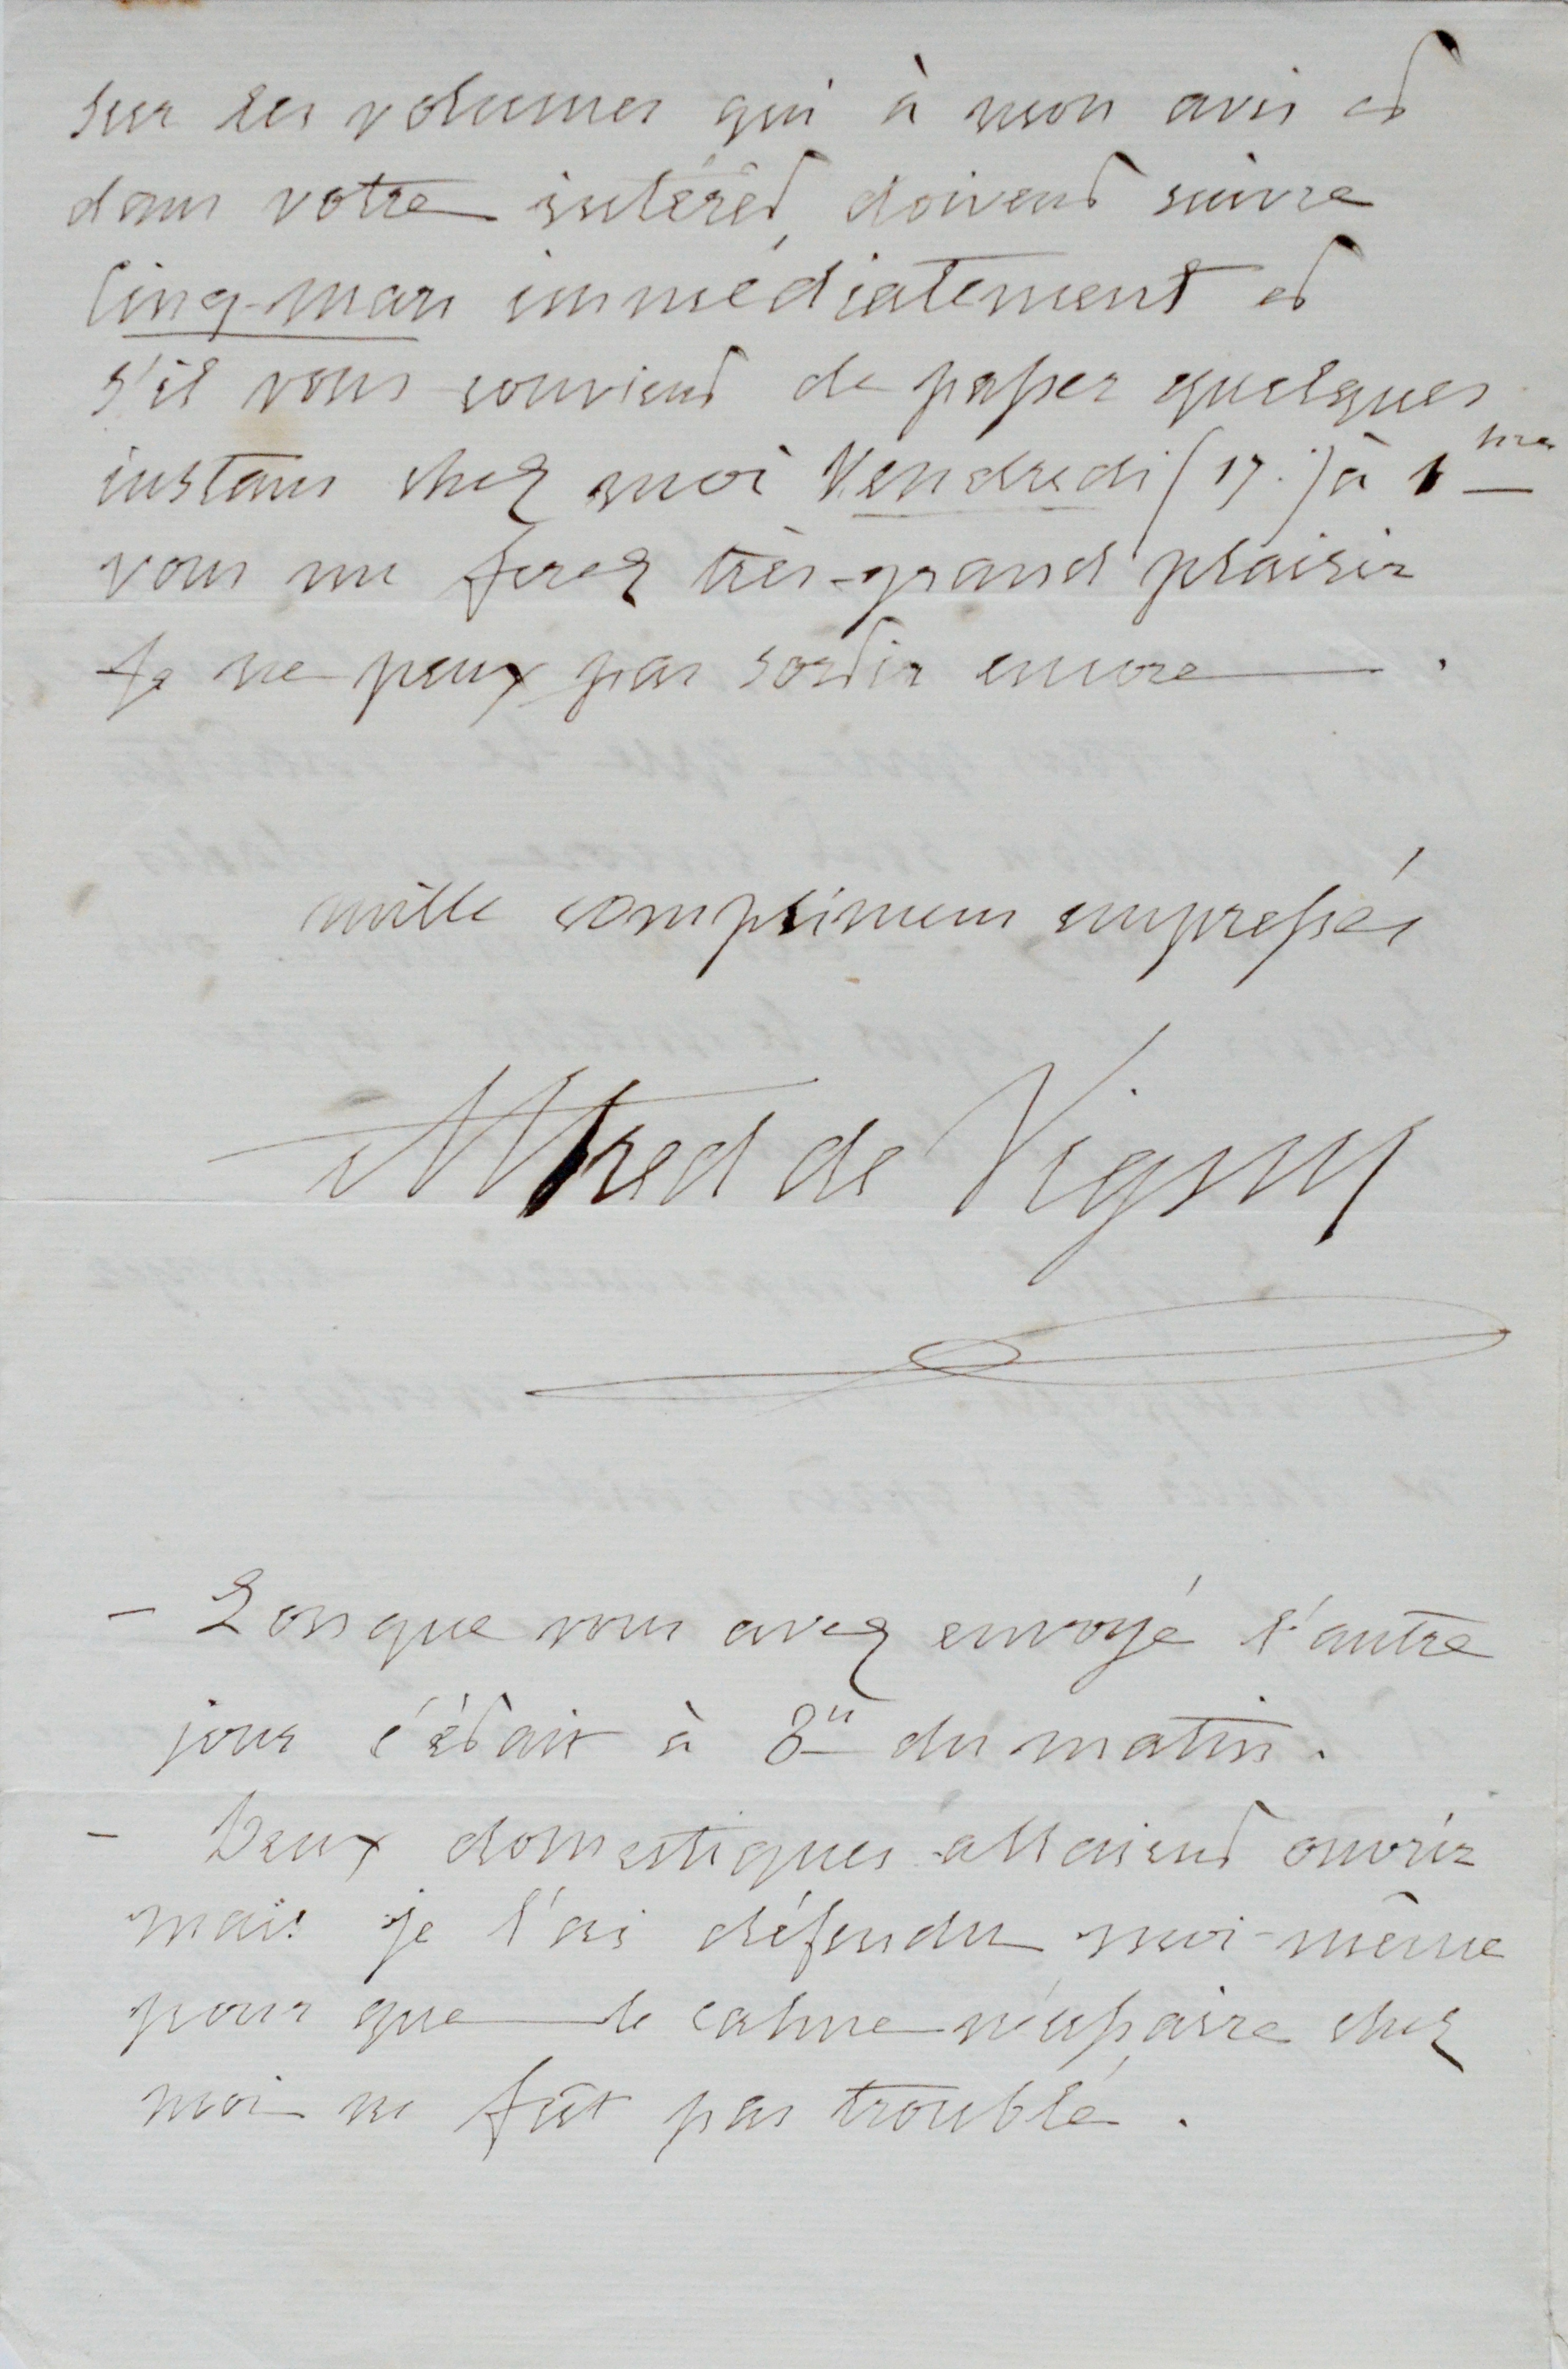 sur les volumes qui à mon avis et
dans votre intérêt, doivent suivre
Cinq-mars immédiatement et
s'il vous convient de passer quelques
instans chez moi Vendredi (17.) à 1 hre
vous me ferez très-grand plaisir
Je ne peux pas sortir encore .
mille complimens empressés
Alfred de Vigny
- Lorsque vous avez envoyé l'autre
jour c'était à 8 h du matin.
- Deux domestiques allaient ouvrir
mais je l'ai défendu moi-même
pour que le calme nécessaire chez
moi ne fût pas troublé.